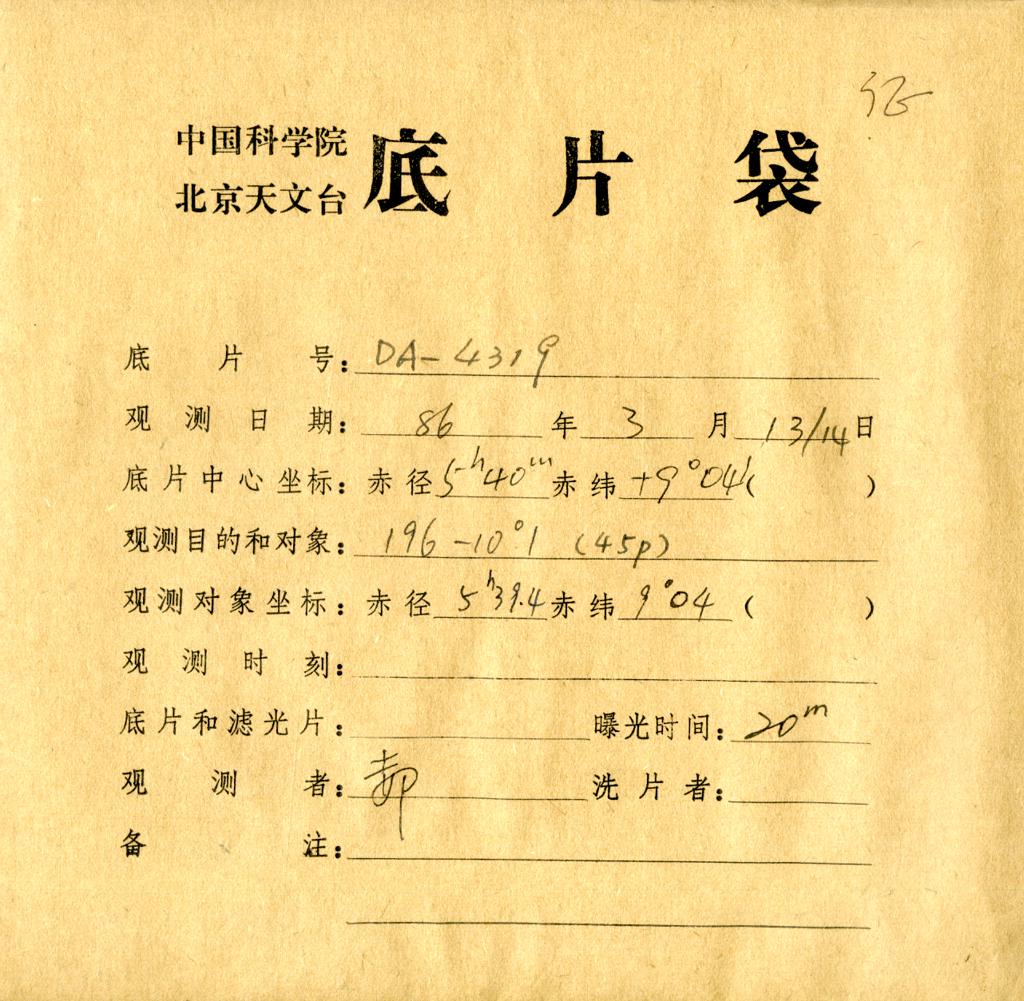 中国科学院
北京天文台 底片袋
底片号: DA-4319
观测日期: 86 年 3 月 13/14 日
底片中心坐标: 赤径 5h40m 赤纬 +9°04′ ( )
观测目的和对象: 196-10°1 (45p)
观测对象坐标: 赤径 5h39.4 赤纬 9°04 ( )
观测时刻:
底片和滤光片: 曝光时间: 20m
观测者: 郝 洗片者:
备注: